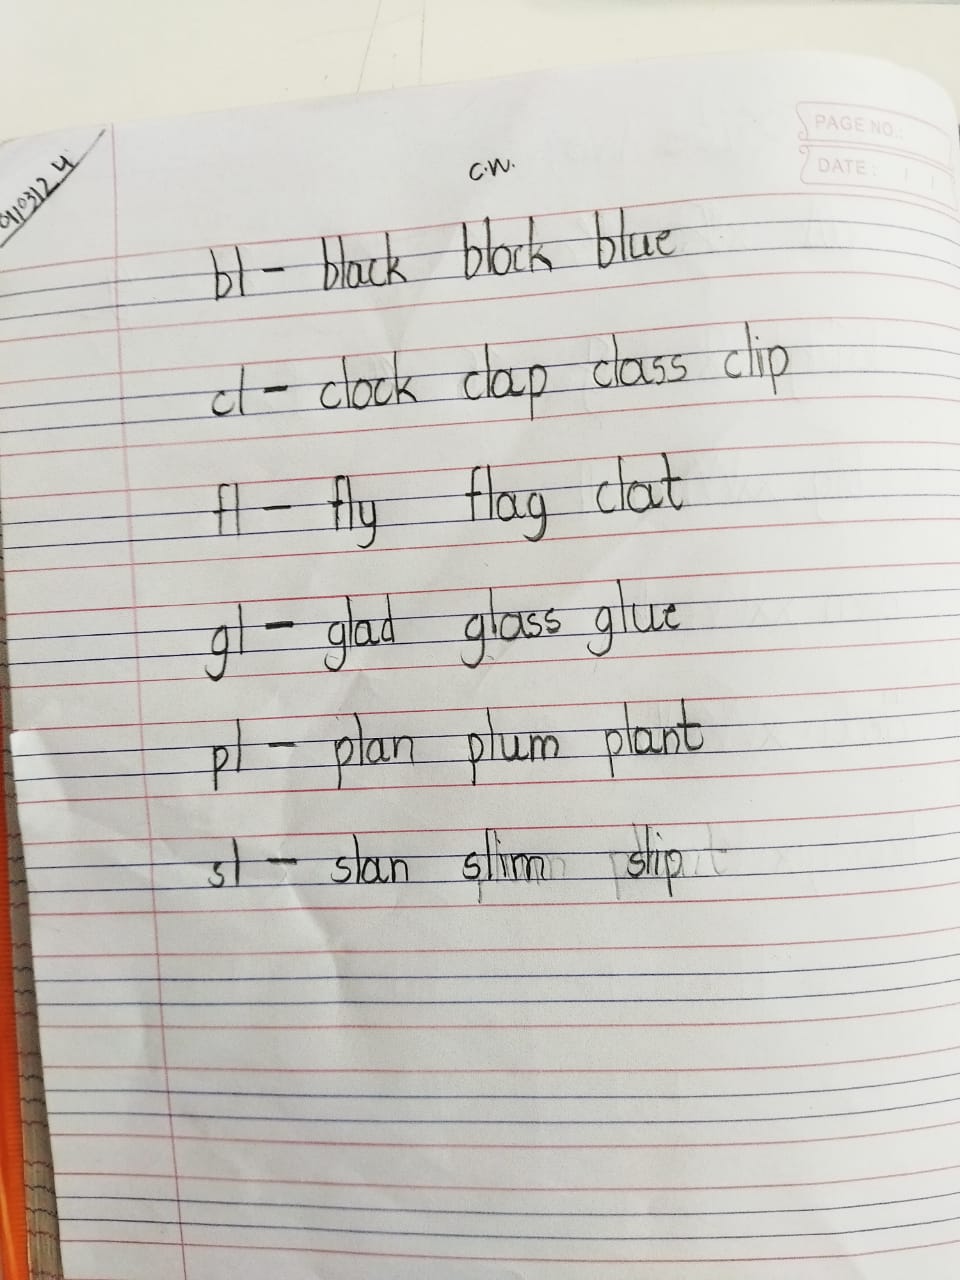 PAGE NO.:
DATE:
C.W.
bl - black block blue
cl - clock clap class clip
fl - fly flag clat
gl - glad glass glue
pl - plan plum plant
sl - slan slim slip